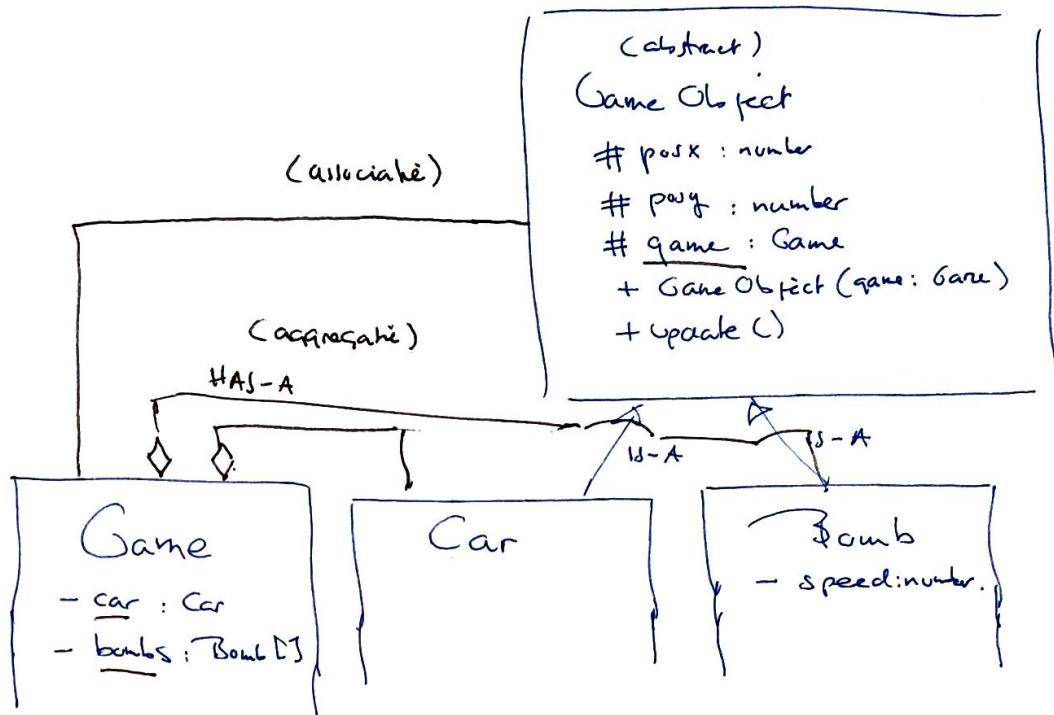 (abstract)
Game Object
# posx : number
# posy : number
# game : Game
+ GameObject (game: Game)
+ update()
(associatie)
(aggregatie)
HAS-A
IS-A
IS-A
Game
- car : Car
- bombs : Bomb[]
Car
Bomb
- speed: number.